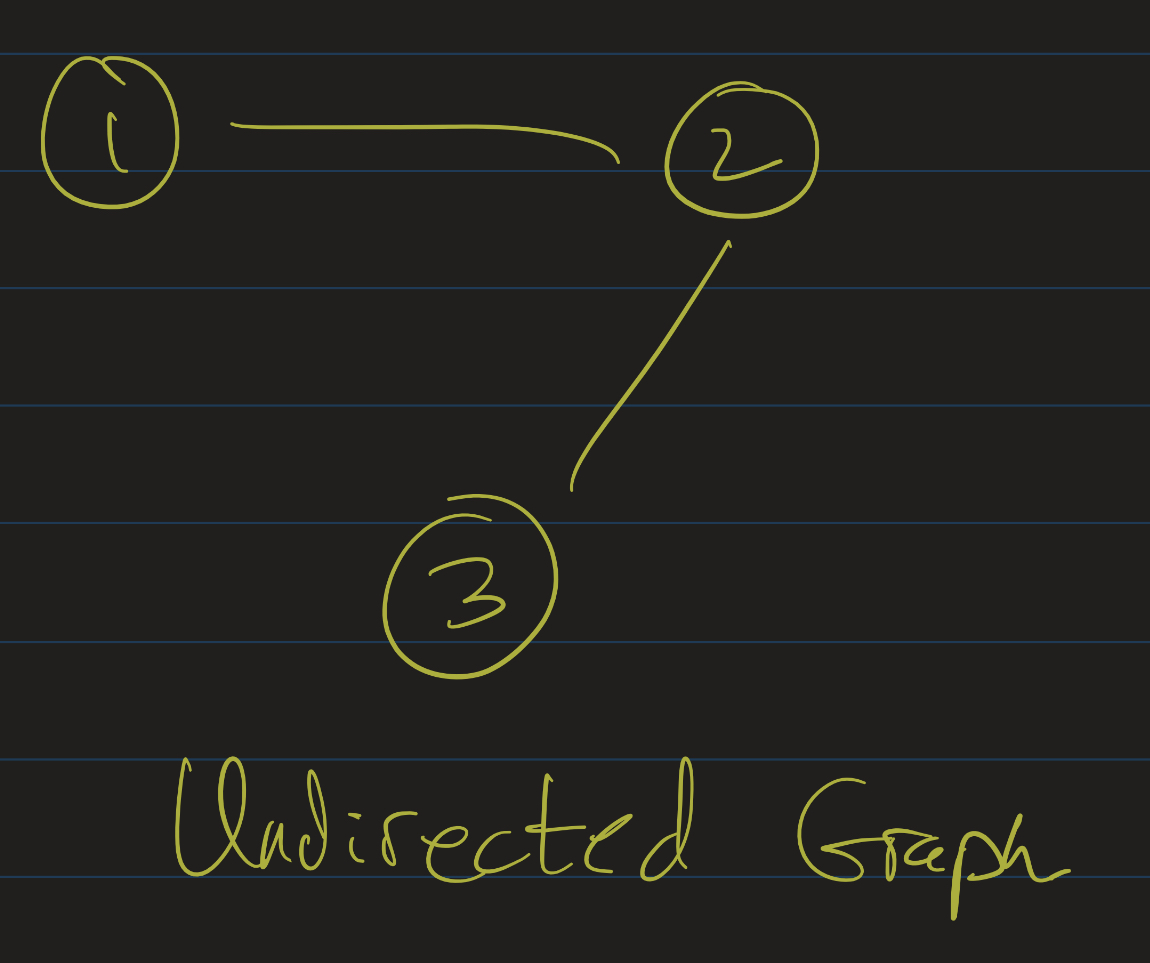 1 2
3
Undirected Graph